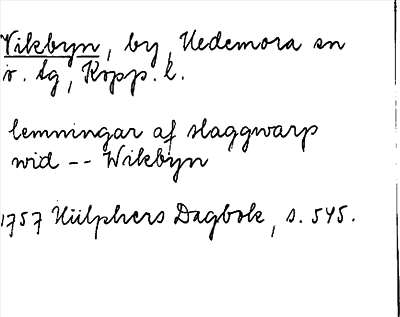 Vikbyn, by, Hedemora sn
o. tg, Kopp. l.
lemningar af slaggwarp
wid -- Wikbyn
1757 Hülphers Dagbok, s. 545.